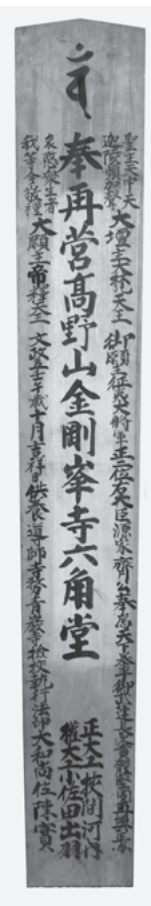 聖主天中天
迦陵頻伽聲
大壇主大梵天王 御願主征夷大将軍正二位左大臣源家齊公奉為天下泰平御武運長久
奉再営髙野山金剛峯寺六角堂
哀愍衆生者
我等今敬禮
大願主帝釋天王 文政五壬午歳十月吉祥日供養導師寺務検校執行法印大和尚位陳實
正大工 河内
権大工小佐田出羽